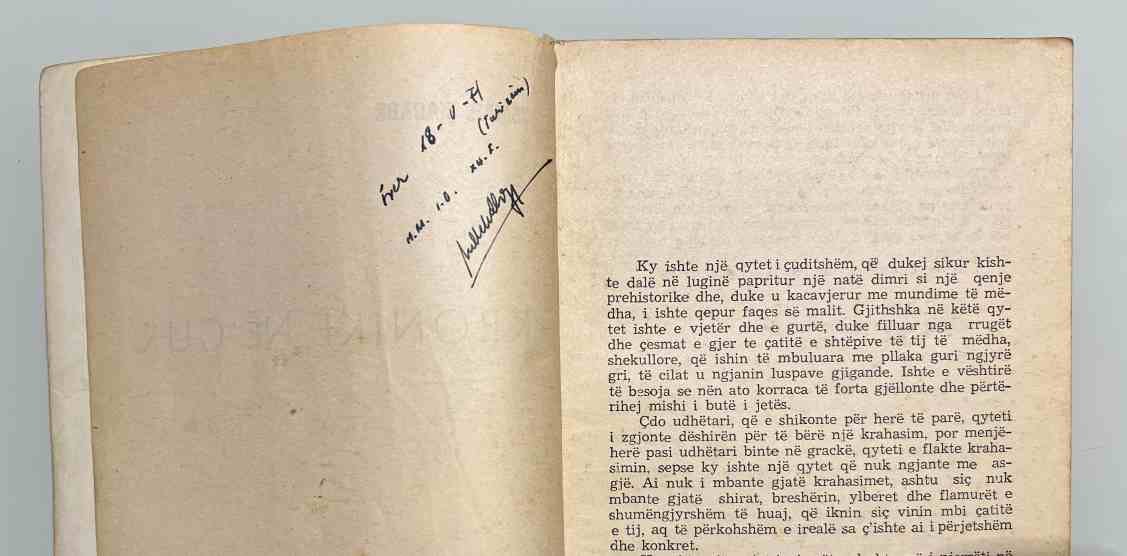 18-V-71
(Turizëm)
Ky ishte një qytet i çuditshëm, që dukej sikur kish-
te dalë në luginë papritur një natë dimri si një qenje
prehistorike dhe, duke u kacavjerur me mundime të më-
dha, i ishte qepur faqes së malit. Gjithshka në këtë qy-
tet ishte e vjetër dhe e gurtë, duke filluar nga rrugët
dhe çesmat e gjer te çatitë e shtëpive të tij të mëdha,
shekullore, që ishin të mbuluara me pllaka guri ngjyrë
gri, të cilat u ngjanin luspave gjigande. Ishte e vështirë
të besoja se nën ato korraca të forta gjëllonte dhe përtë-
rihej mishi i butë i jetës.
Çdo udhëtari, që e shikonte për herë të parë, qyteti
i zgjonte dëshirën për të bërë një krahasim, por menjë-
herë pasi udhëtari binte në grackë, qyteti e flakte kraha-
simin, sepse ky ishte një qytet që nuk ngjante me as-
gjë. Ai nuk i mbante gjatë krahasimet, ashtu siç nuk
mbante gjatë shirat, breshërin, ylberet dhe flamurët e
shumëngjyrshëm të huaj, që iknin siç vinin mbi çatitë
e tij, aq të përkohshëm e irealë sa ç'ishte ai i përjetshëm
dhe konkret.